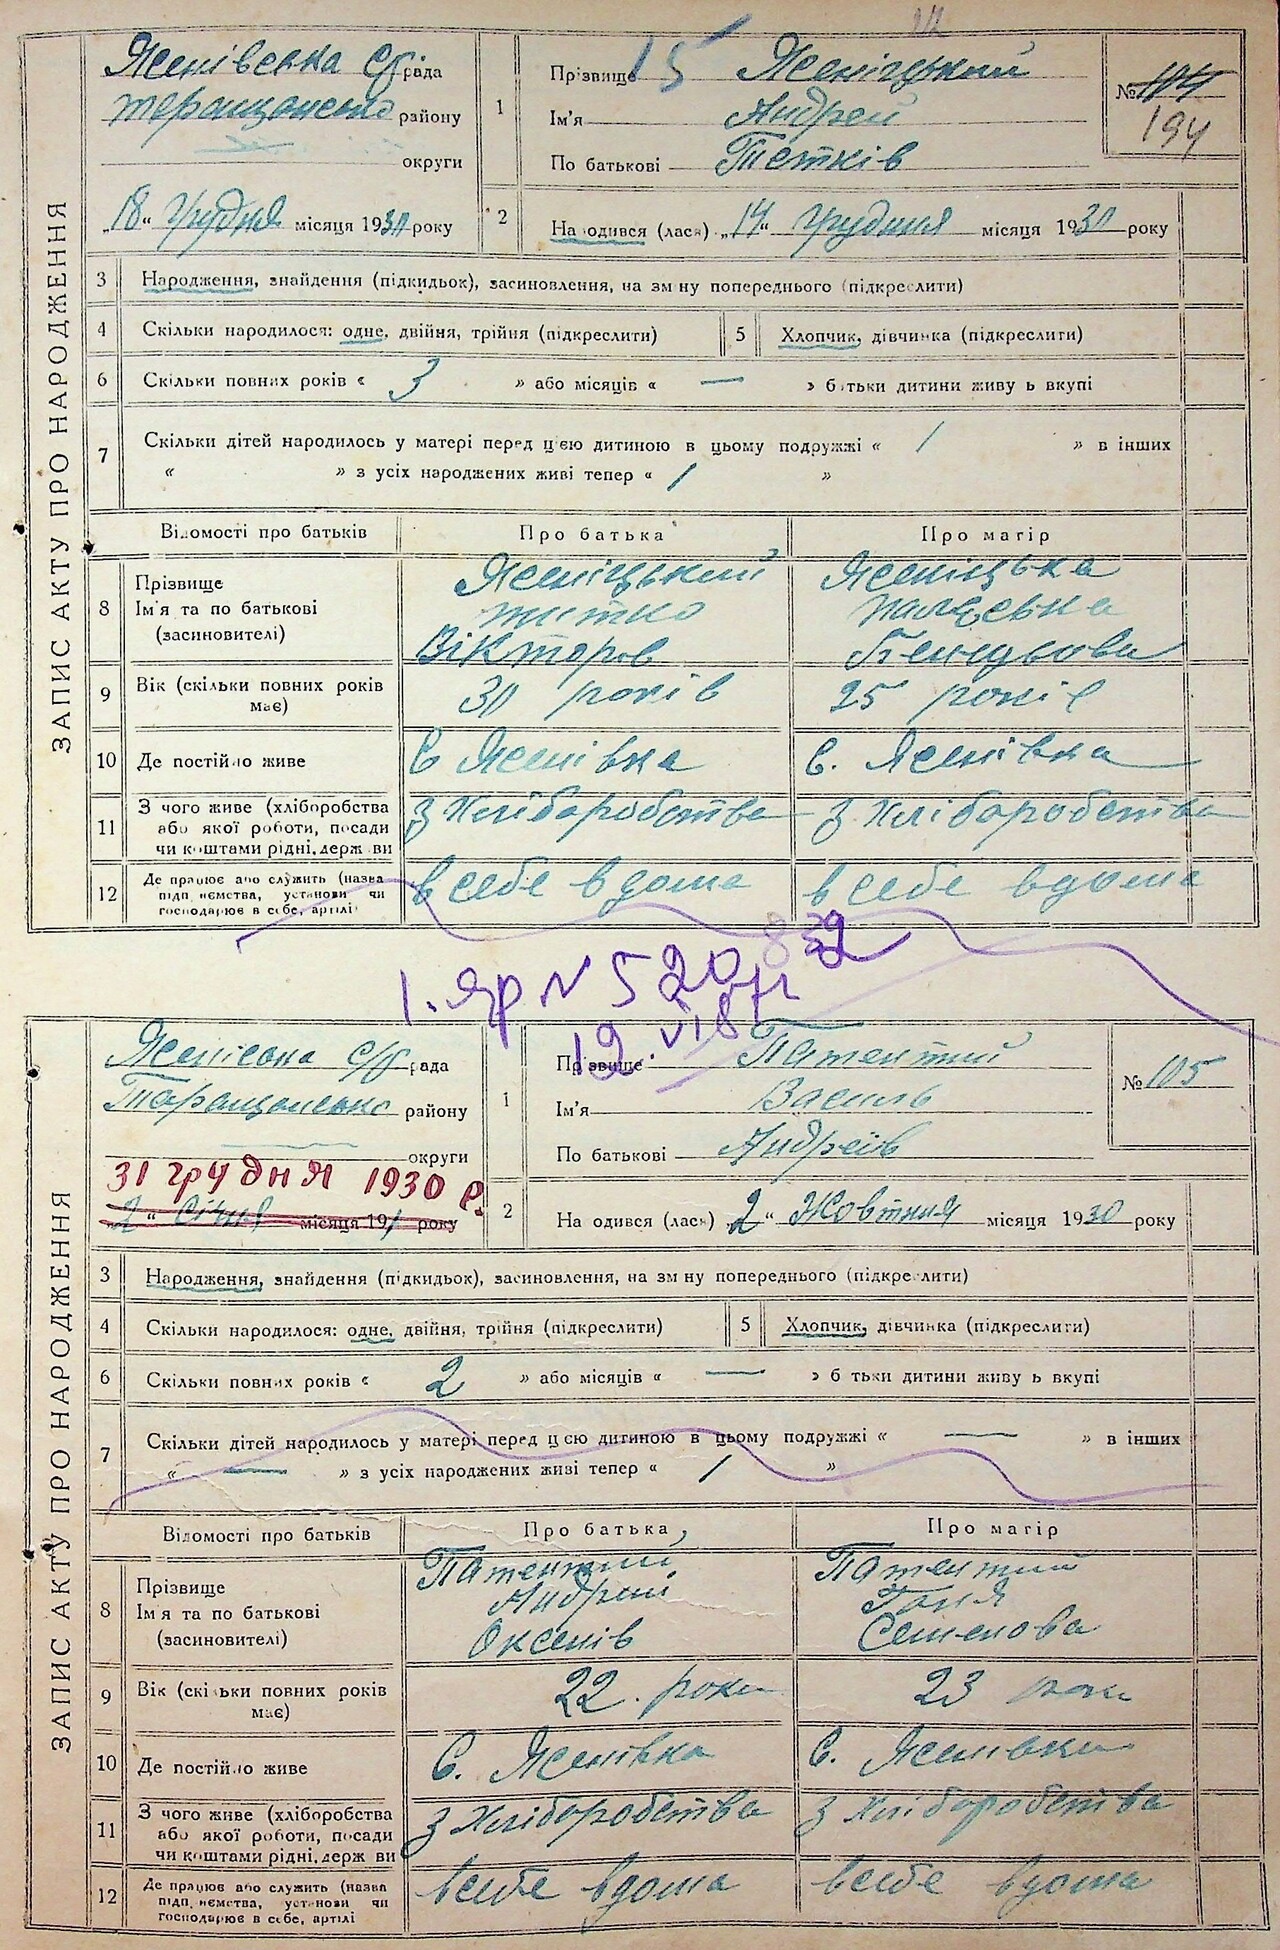 ЗАПИС АКТУ ПРО НАРОДЖЕННЯ
Ясенівська С/рада
району
округи
„18“ Грудня місяця 1930 року
1
15
Прізвище Ясеніцький
Ім'я Андрей
По батькові Тетків
№ 104
194
2 Народився (лася) „14“ Грудня місяця 1930 року
3 Народження, знайдення (підкидьок), засиновлення, на зміну попереднього (підкреслити)
4 Скільки народилося: одне, двійня, трійня (підкреслити)
5 Хлопчик, дівчинка (підкреслити)
6 Скільки повних років « 3 » або місяців « — » батьки дитини живуть вкупі
7 Скільки дітей народилось у матері перед цією дитиною в цьому подружжі « 1 » в інших
« » з усіх народжених живі тепер « 1 »
Відомості про батьків Про батька Про матір
8 Прізвище Ясеніцький Ясеніцька
Ім'я та по батькові
(засиновителі) Вікторов
9 Вік (скільки повних років має) 30 років 25 років
10 Де постійно живе С Ясенівка С. Ясенівка
11 З чого живе (хліборобства або якої роботи, посади чи коштами рідні, держави) З Хліборобства З Хліборобства
12 Де працює або служить (назва підприємства, установи чи господарює в себе, артілі) в себе вдома в себе вдома
1. ЯР N 520832
12.VI 87
ЗАПИС АКТУ ПРО НАРОДЖЕННЯ
С/рада
Таращанського району
округи
31 грудня 1930 р.
„2“ Січня місяця 191 року
1
Прізвище Патентий
Ім'я Василь
По батькові Андреїв
№ 105
2 Народився (лася) „2“ Жовтня місяця 1930 року
3 Народження, знайдення (підкидьок), засиновлення, на зміну попереднього (підкреслити)
4 Скільки народилося: одне, двійня, трійня (підкреслити)
5 Хлопчик, дівчинка (підкреслити)
6 Скільки повних років « 2 » або місяців « — » батьки дитини живуть вкупі
7 Скільки дітей народилось у матері перед цією дитиною в цьому подружжі « — » в інших
« — » з усіх народжених живі тепер « 1 »
Відомості про батьків Про батька Про матір
8 Прізвище Патентий Патентий
Ім'я та по батькові Андрій Ганя
(засиновителі) Оксенів Семенова
9 Вік (скільки повних років має) 22 роки 23 роки
10 Де постійно живе С. Ясенівка С. Ясенівка
11 З чого живе (хліборобства або якої роботи, посади чи коштами рідні, держави) З Хліборобства З Хліборобства
12 Де працює або служить (назва підприємства, установи чи господарює в себе, артілі в себе вдома в себе вдома